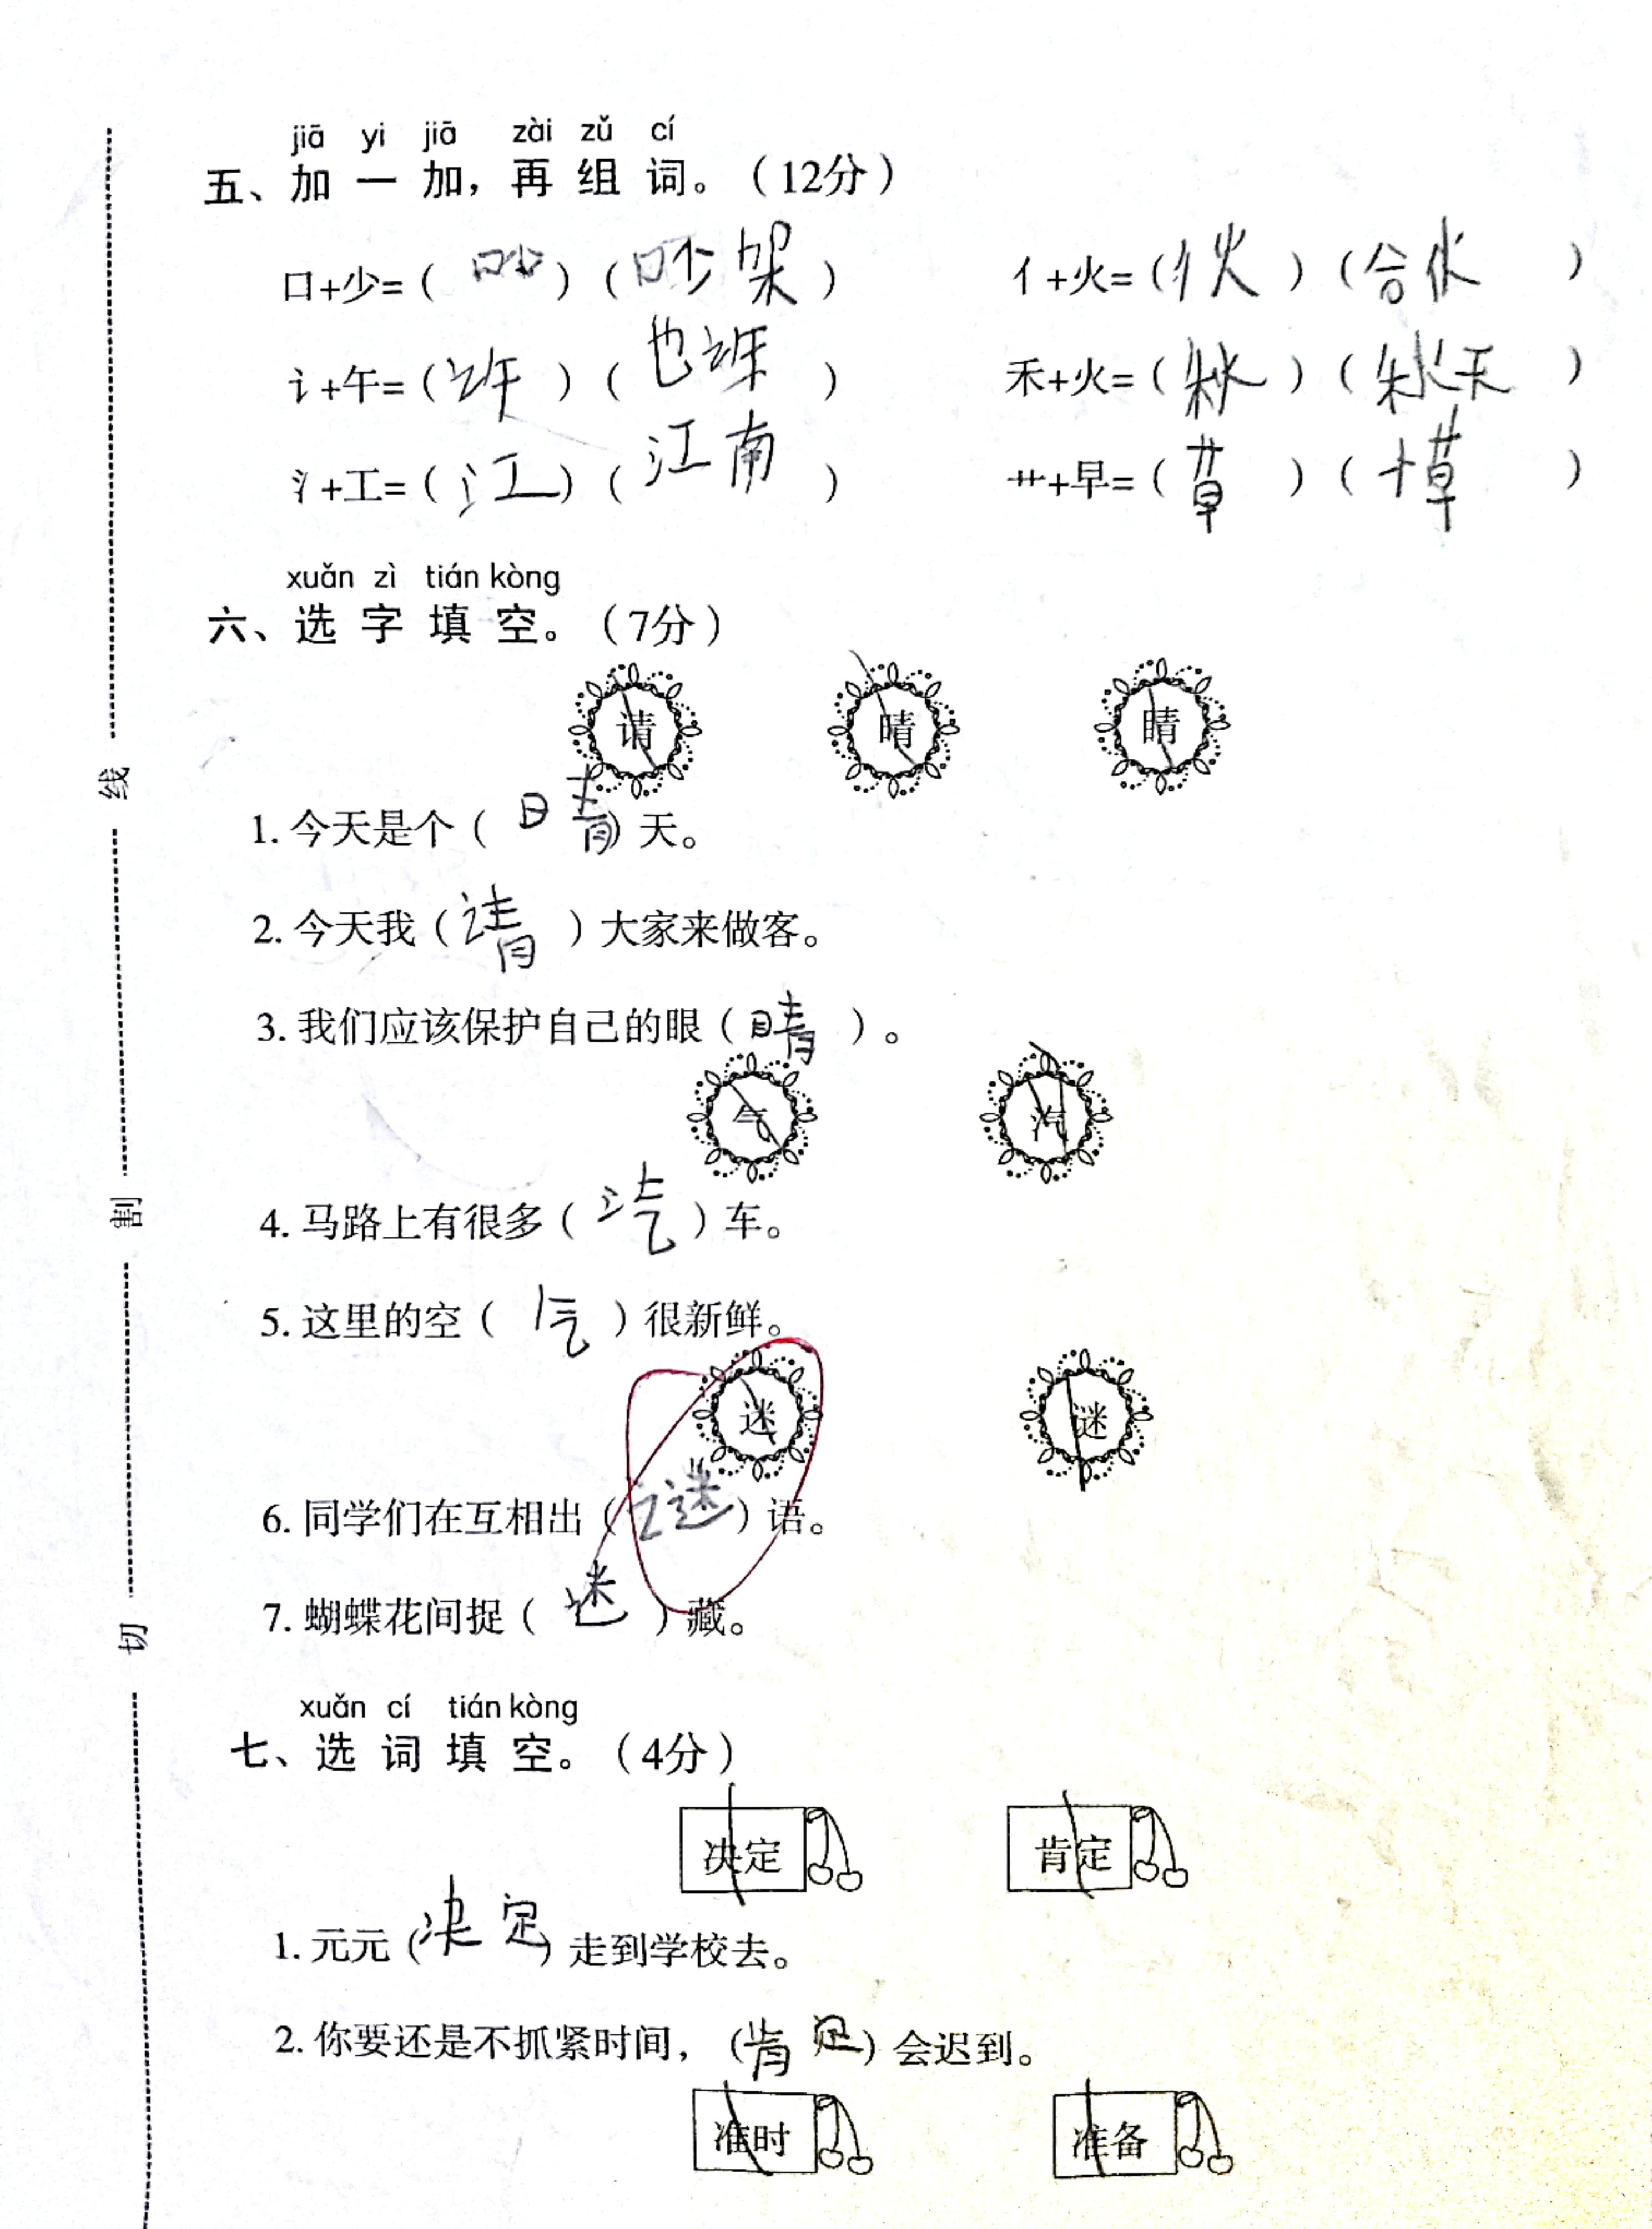 jiā yi jiā zài zǔ cí
五、加一加，再组词。（12分）
口+少=（吵）（吵架） 亻+火=（伙）（合伙）
讠+午=（许）（也许） 禾+火=（秋）（秋天）
氵+工=（江）（江南） 艹+早=（草）（小草）
xuǎn zì tián kòng
六、选字填空。（7分）
请 晴 睛
1. 今天是个（晴）天。
2. 今天我（请）大家来做客。
3. 我们应该保护自己的眼（睛）。
气 汽
4. 马路上有很多（汽）车。
5. 这里的空（气）很新鲜。
迷 谜
6. 同学们在互相出（谜）语。
7. 蝴蝶花间捉（迷）藏。
xuǎn cí tián kòng
七、选词填空。（4分）
决定 肯定
1. 元元（决定）走到学校去。
2. 你要还是不抓紧时间，（肯定）会迟到。
准时 准备
线
割
切